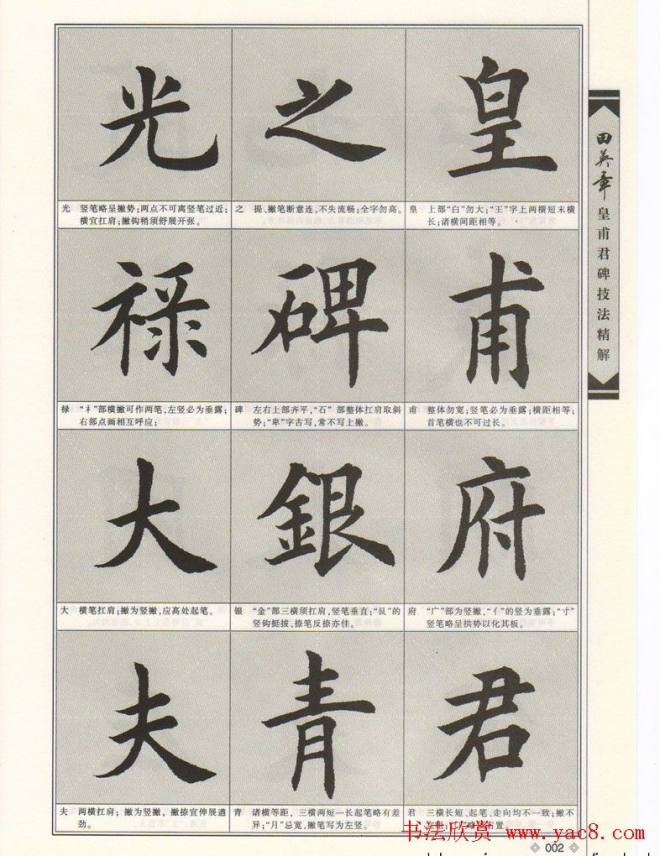 光 之 皇
光 竖笔略呈撇势;两点不可离竖笔过近;
横宜扛肩;撇钩稍须舒展开张。
之 提、撇笔断意连,不失流畅;全字勿高。
皇 上部“白”勿大;“王”字上两横短末横
长;诸横间距相等。
禄 碑 甫
禄 “礻”部横撇可作两笔,左竖必为垂露;
右部点画相互呼应;
碑 左右上部齐平,“石”部整体扛肩取斜
势;“卑”字古写,常不写上撇。
甫 整体勿宽;竖笔必为垂露;横距相等;
首笔横也不可过长。
大 銀 府
大 横笔扛肩;撇为竖撇,应高处起笔。
银 “金”部三横须扛肩,竖笔垂直;“艮”的
竖钩挺拔,捺笔反捺亦佳。
府 “广”部为竖撇,“亻”的竖为垂露;“寸”
竖笔略呈拱势以化其板。
夫 青 君
夫 两横扛肩;撇为竖撇,撇捺宜伸展遒
劲。
青 诸横等距,三横两短一长起笔略有差
异;“月”忌宽,撇笔写为左竖。
君 三横长短、起笔、走向均不一致;撇不
田英章
皇甫君碑技法精解
书法欣赏 www.yac8.com
002